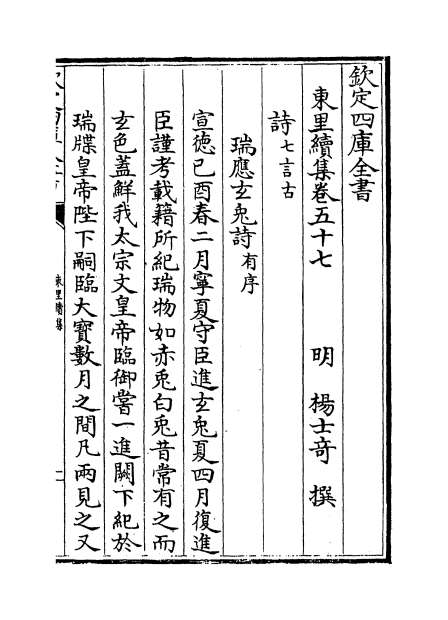 欽定四庫全書
東里續集卷五十七
明 楊士竒 撰
詩七言古
瑞應玄兎詩有序
宣徳已酉春二月寧夏守臣進玄兎夏四月復進
臣謹考載籍所紀瑞物如赤兎白兎昔常有之而
玄色蓋鮮我太宗文皇帝臨御嘗一進闕下紀於
瑞牒皇帝陛下嗣臨大寳數月之間凡兩見之又
東里續集